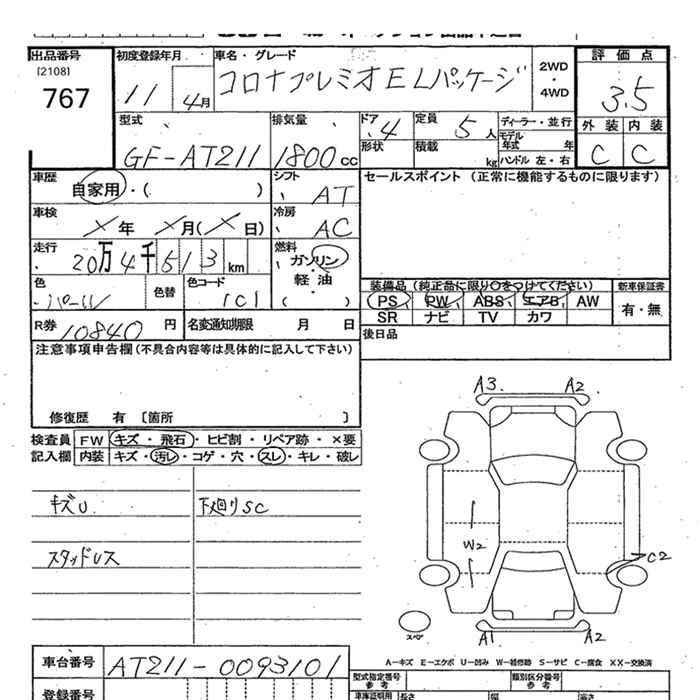 出品番号 初度登録年月 車名・グレード 評価点
(2108)
767 11 4月 コロナプレミオELパッケージ 2WD・4WD 3.5
型式 排気量 ドア 定員 ディーラー・並行 外装 内装
GF-AT211 1800cc 4 5人 モデル年式 年 C C
形状 積載 kg ハンドル 左・右
車歴 自家用・( ) シフト AT セールスポイント(正常に機能するものに限ります)
車検 × 年 × 月(× 日) 冷房 AC
走行 20万4千513km 燃料 ガソリン
軽油
( )
色 パール 色替 色コード 1C1
装備品(純正品に限り○をつけてください) 新車保証書
PS PW ABS エアB AW 有・無
SR ナビ TV カワ
R券 10840円 名変通知期限 月 日
後日品
注意事項申告欄(不具合内容等は具体的に記入して下さい)
修復歴 有〔箇所 〕
検査員 FW キズ・飛石・ヒビ割・リペア跡・×要
記入欄 内装 キズ・汚レ・コゲ・穴・スレ・キレ・破レ
キズU 下廻りSC
スタッドレス
A3 A2
W2
C2
スペア
A1 A2
A-キズ E-エクボ U-凹み W-補修跡 S-サビ C-腐食 XX-交換済
車台番号 AT211-0093101
型式指定番号 類別区分番号
参考 参考
登録番号
車庫証明用 長さ 幅 高さ